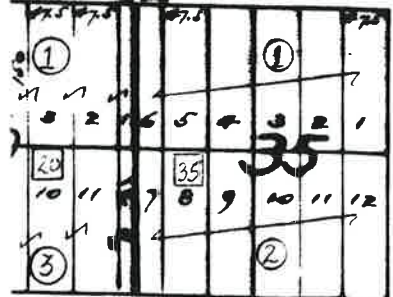 47.5 47.5 47.5 47.5
1 1
3 2 1 6 5 4 3 2 1
35
20 35
10 11 7 8 9 10 11 12
3 2